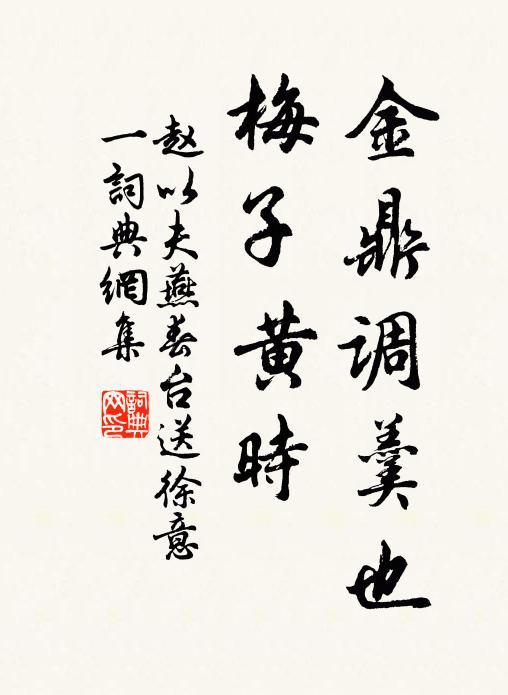 金鼎调羹也
梅子黄時
赵以夫燕春台送徐意
一詞典網集
詞典网印